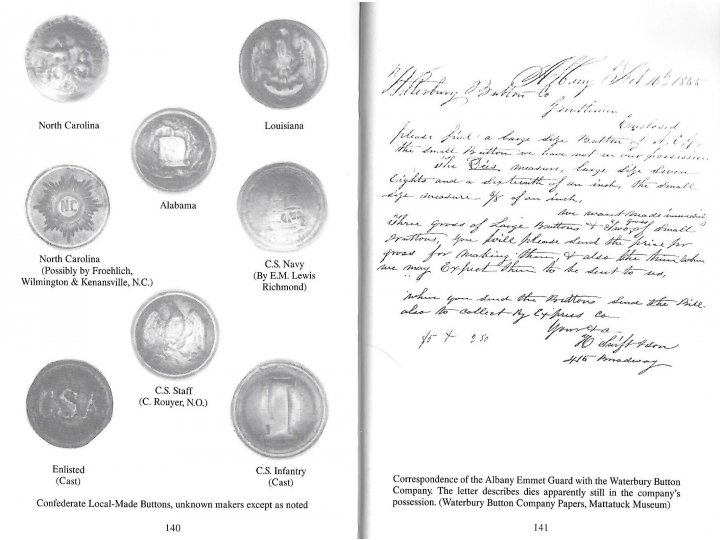 North Carolina
Louisiana
Alabama
NC
North Carolina
(Possibly by Froehlich,
Wilmington & Kenansville, N.C.)
C.S. Navy
(By E.M. Lewis
Richmond)
C.S. Staff
(C. Rouyer, N.O.)
CSA
I
Enlisted
(Cast)
C.S. Infantry
(Cast)
Confederate Local-Made Buttons, unknown makers except as noted
140
Albany 1865
Waterbury Button Co
Gentlemen
Enclosed
please find a large size Button of
the small Button we have not in our possession
The Dies measure, large size seven
Eights and a Sixteenth of an inch, the small
size measure 5/8 of an inch,
we want made immediately
Three gross of Large Buttons & Two gross of Small
Buttons, you will please send the price per
gross for making them & also the time when
we may Expect them to be sent to us,
when you send the Buttons send the Bill
also to collect by Express Co
Yours &c
H Swift & son
415 Broadway
Correspondence of the Albany Emmet Guard with the Waterbury Button
Company. The letter describes dies apparently still in the company's
possession. (Waterbury Button Company Papers, Mattatuck Museum)
141